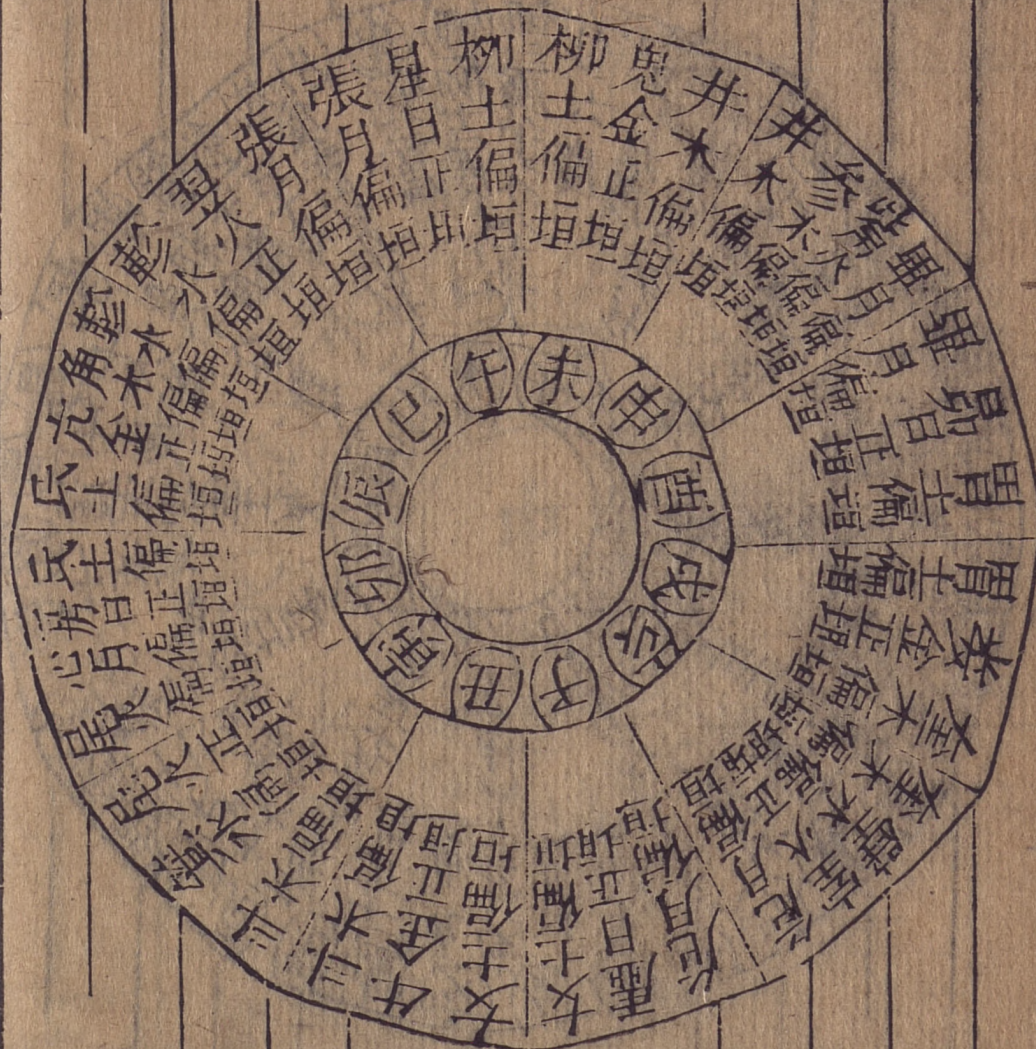 柳土偏垣
鬼金正垣
井木偏垣
井木偏垣
參水偏垣
觜火偏垣
畢月偏垣
畢月偏垣
昴日正垣
胃土偏垣
胃土偏垣
婁金正垣
奎木偏垣
奎木偏垣
壁水偏垣
室火正垣
危月偏垣
危月偏垣
虛日正垣
女土偏垣
女土偏垣
牛金正垣
斗木偏垣
斗木偏垣
箕水偏垣
尾火正垣
尾火偏垣
心月偏垣
房日正垣
氐土偏垣
氐土偏垣
亢金正垣
角木偏垣
軫水偏垣
軫水偏垣
翌火正垣
張月偏垣
張月偏垣
星日正垣
柳土偏垣
未
申
酉
戌
亥
子
丑
寅
卯
辰
巳
午